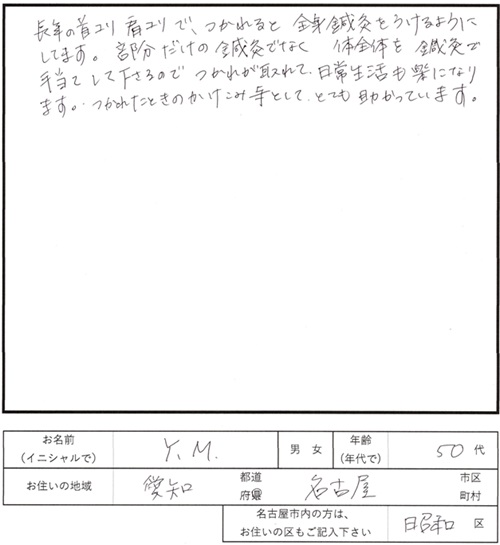 長年の首コリ 肩コリで、つかれると 全身鍼灸をうけるように
してます。 部分だけの鍼灸でなく 体全体を 鍼灸で
手当てして下さるので つかれが取れて、日常生活も楽になり
ます。つかれたときのかけこみ寺として、とても助かっています。
お名前
(イニシャルで) Y. M. 男 女 年齢
(年代で) 50 代
お住いの地域 愛知 都道
府県 名古屋 市区
町村
名古屋市内の方は、
お住いの区もご記入下さい 昭和 区